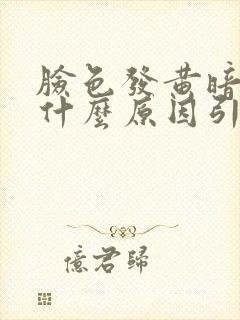 臉色發黃暗
什麼原因引
億君歸